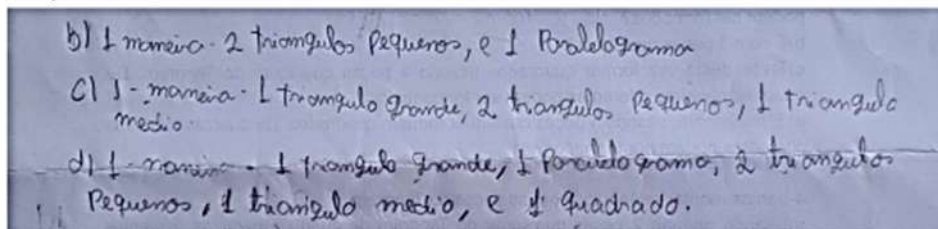 b) 1 maneira. 2 triangulos Pequenos, e 1 Paralelograma
c) 1 - maneira - 1 triangulo grande, 2 triangulos Pequenos, 1 triangulo
medio
d) 1 - maneira - 1 triangulo grande, 1 Paralelogramo, 2 triangulos
Pequenos, 1 triangulo medio, e 1 quadrado.